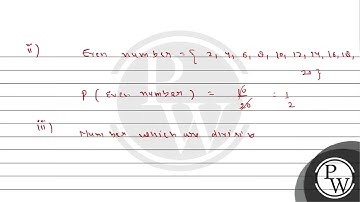 ii) Even number = { 2, 4, 6, 8, 10, 12, 14, 16, 18,
20 }
P ( Even number ) = 10/20 = 1/2
iii) Number which are divisib
PW